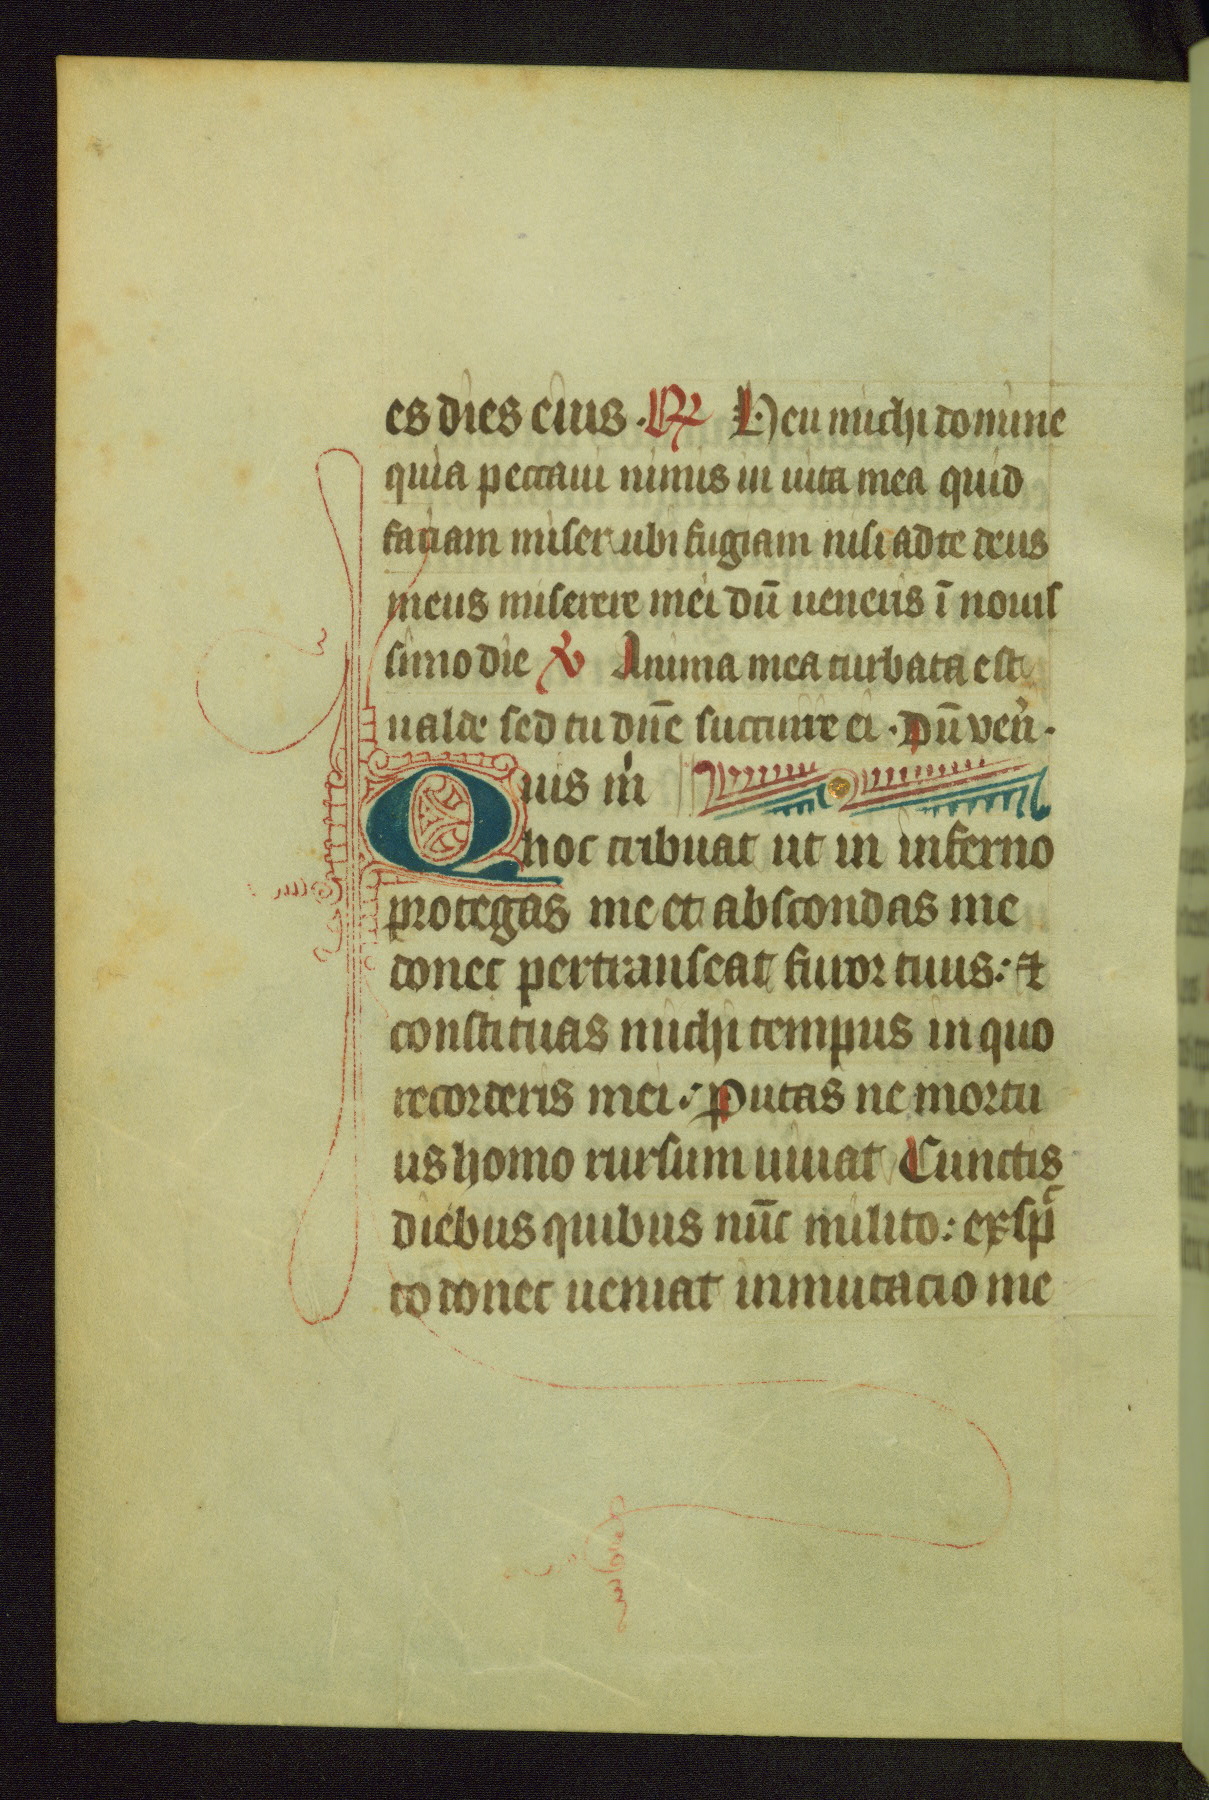 es dies eius . R Heu michi domine
quia peccaui nimis in uita mea quid
faciam miser ubi fugiam nisi ad te deus
meus miserere mei dū ueneris ī nouis
simo die V Anima mea turbata est
ualde sed tu dn̄e succurre ei . Dū ven̄ .
Quis m
hoc tribuat ut in inferno
protegas me et abscondas me
donec pertranseat furor tuus : et
constituas michi tempus in quo
recorderis mei : Putas ne mortu
us homo rursum uiuat Cunctis
diebus quibus nūc milito : exsp
to donec ueniat inmutacio me